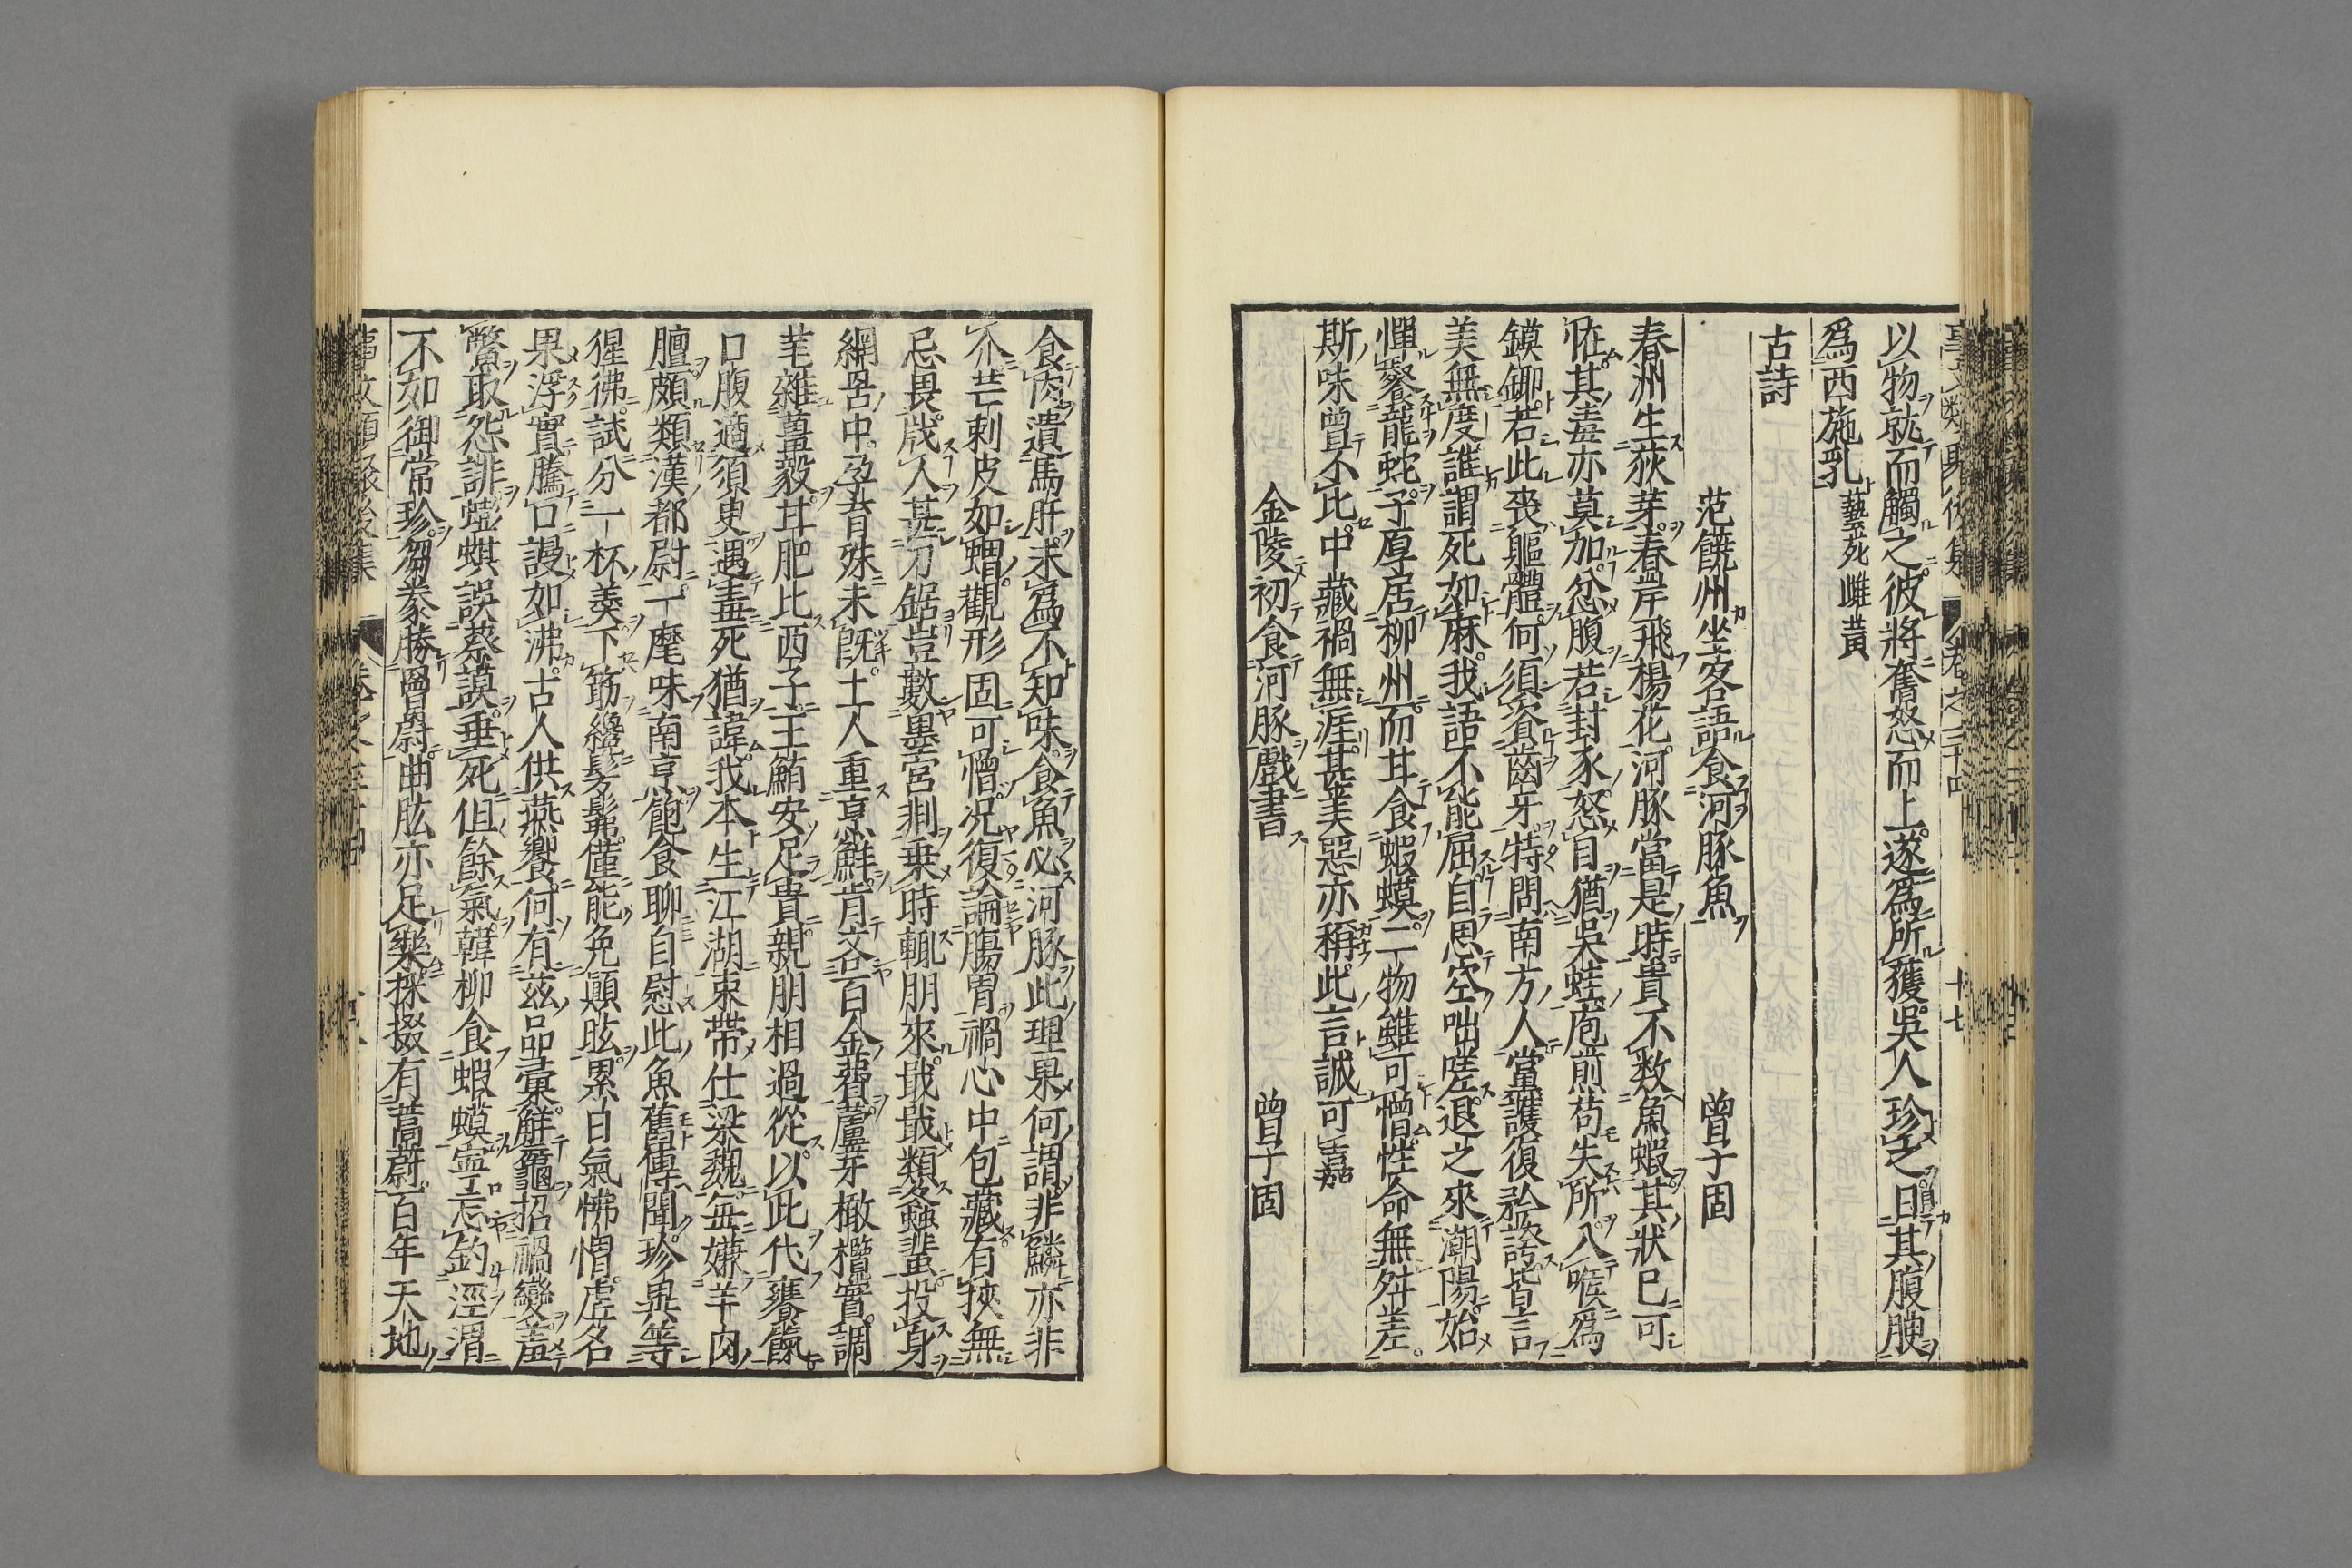 以物就而觸之彼將奮怒而上遂爲所獲吳人珍之目其腹腴
爲西施乳藝苑雌黃
古詩
范饒州坐客語食河豚魚 曾子固
春洲生荻芽春岸飛楊花河豚當是時貴不数魚蝦其狀已可
恠其毒亦莫加忿腹若封豕怒目猶吳蛙庖煎苟失所入喉爲
鏌鎁若此喪軀體何須資齒牙特問南方人黨護復矜誇皆言
美無度誰謂死如麻我語不能屈自思空咄嗟退之來潮陽始
憚飧龍蛇子厚居柳州而甘食蝦蟇二物雖可憎性命無舛差
斯味曾不比中藏禍無涯甚美惡亦稱此言誠可嘉
金陵初食河豚戲書 曾子固
食肉遺馬肝未爲不知味食魚必河豚此理果何謂非鱗亦非
介芒刺皮如蝟觀形固可憎况復論腸胃禍心中包藏有狹無
忌畏戕人甚刀鋸豈數墨宮剕乗時輒朋來戢戢類䖝蜚投身
網罟中孕育殊未旣士人重烹鮮肯吝百金費蘆芽橄欖實調
芼雜薑毅甘肥比西子王鮪安足貴親朋相過從以此代饔餼
口腹適須臾遇毒死猶諱我本生江湖束帶仕梁魏每嫌羊肉
膻頗類漢都尉一麾味南烹飽食聊自慰此魚舊傳聞珍異等
猩彿試分一杯羮下筯纔髣髴僅能免顚眩累日氣怫愲虛名
果浮實騰口謾如沸古人供燕饗何有茲品彙解黿招禍變羞
鱉取怨誹蟛蜞誤蔡謨垂死但餘氣韓柳食蝦蟇寧忘鈞涇渭
不如御常珍芻豢勝罾罻曲肱亦足樂採掇有蒿蔚百年天地